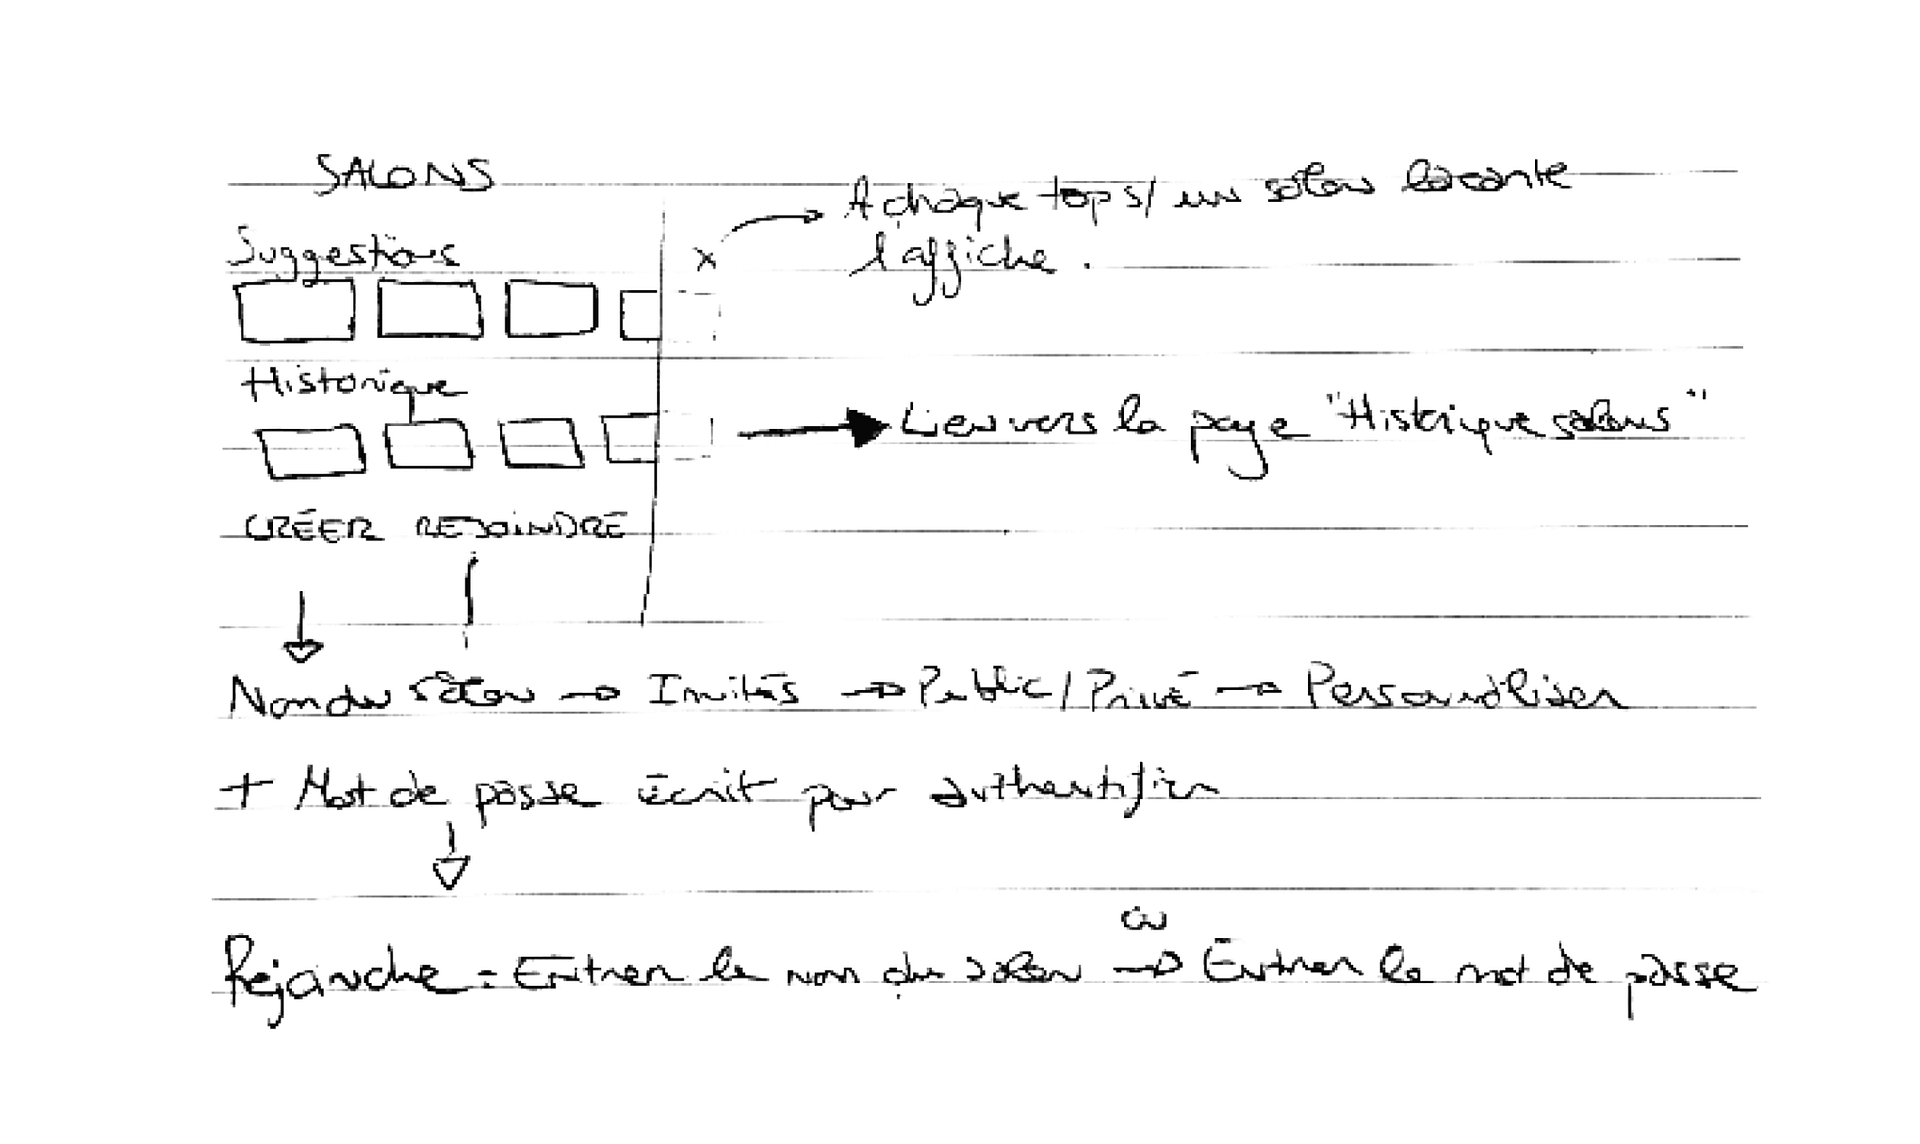 SALONS
Suggestions
x
A chaque top s/ un salon
l'affiche.
Historique
Lien vers la page "Historique salons"
CRÉER REJOINDRE
Nom du salon → Invités → Public / Privé → Personnaliser
+ Mot de passe écrit pour authentifier
ou
Rejoindre = Entrer le nom du salon → Entrer le mot de passe